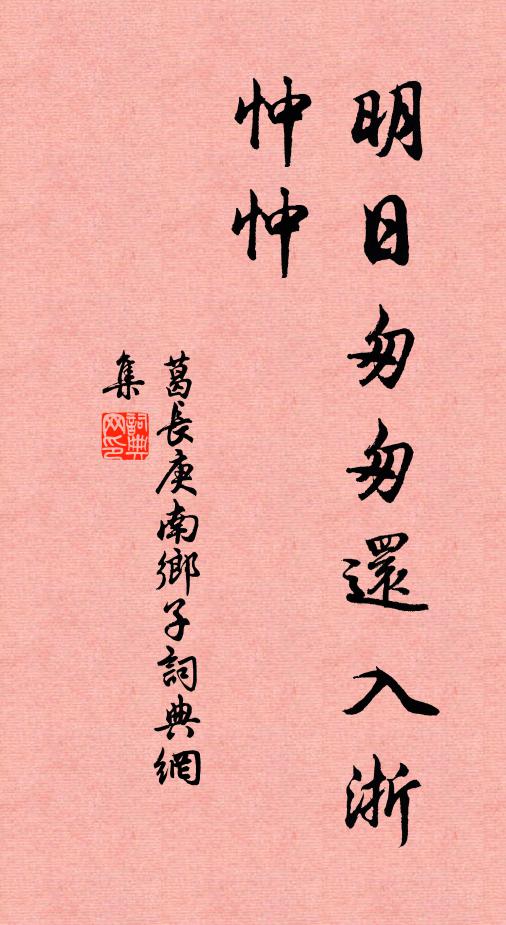 明日匆匆還入浙
忡忡
葛長庚南鄉子詞典網
集
詞典
网印